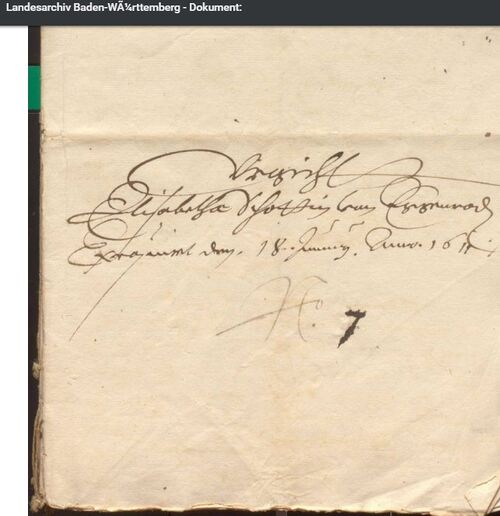 Landesarchiv Baden-WÃ¼rttemberg - Dokument:
Urgicht
Elisabetha Schottin von Essenrod
den 18. Junij. Anno. 1611
No. 7